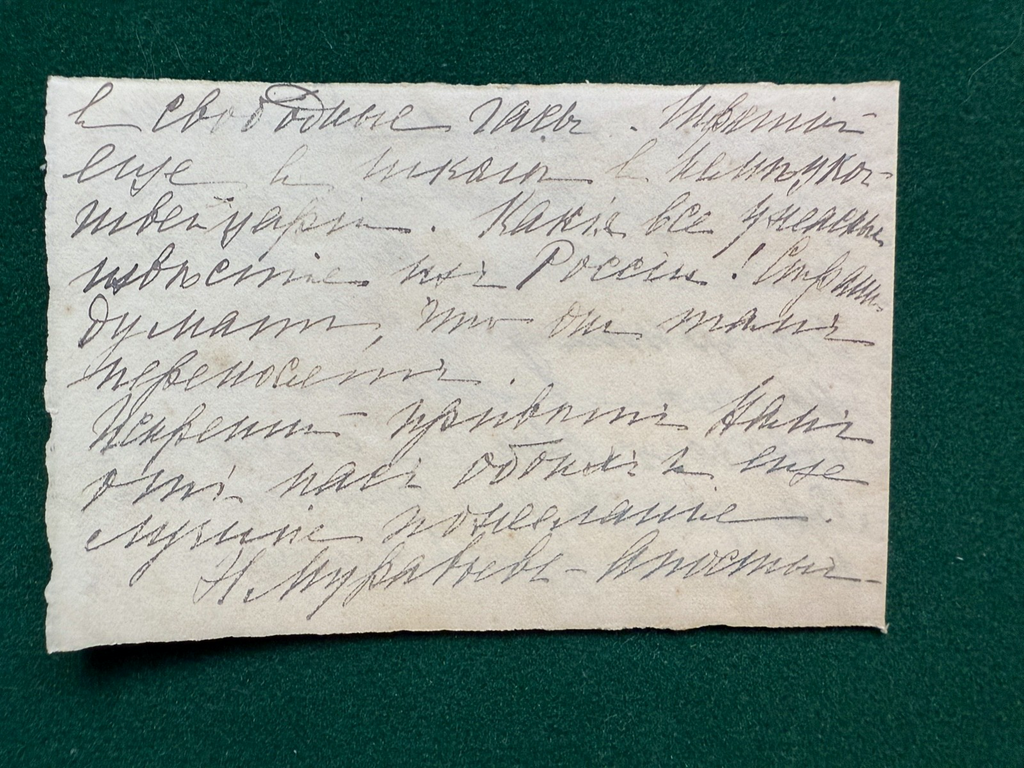 въ свободные часы. Третій
еще въ школѣ въ Нѣмецкой
Швейцаріи. Какіе все ужасные
извѣстіе изъ Россіи! Страшно
думать, что они тамъ
переносятъ.
Искренній привѣтъ Вамъ
отъ насъ обоихъ и еще
лучшіе пожеланіе.
Н. Муравьевъ-Апостолъ